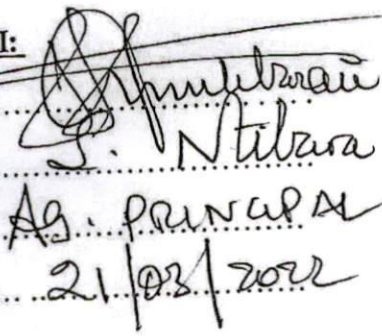 I:
S. Ntibara
Ag. PRINCIPAL
21/03/2022